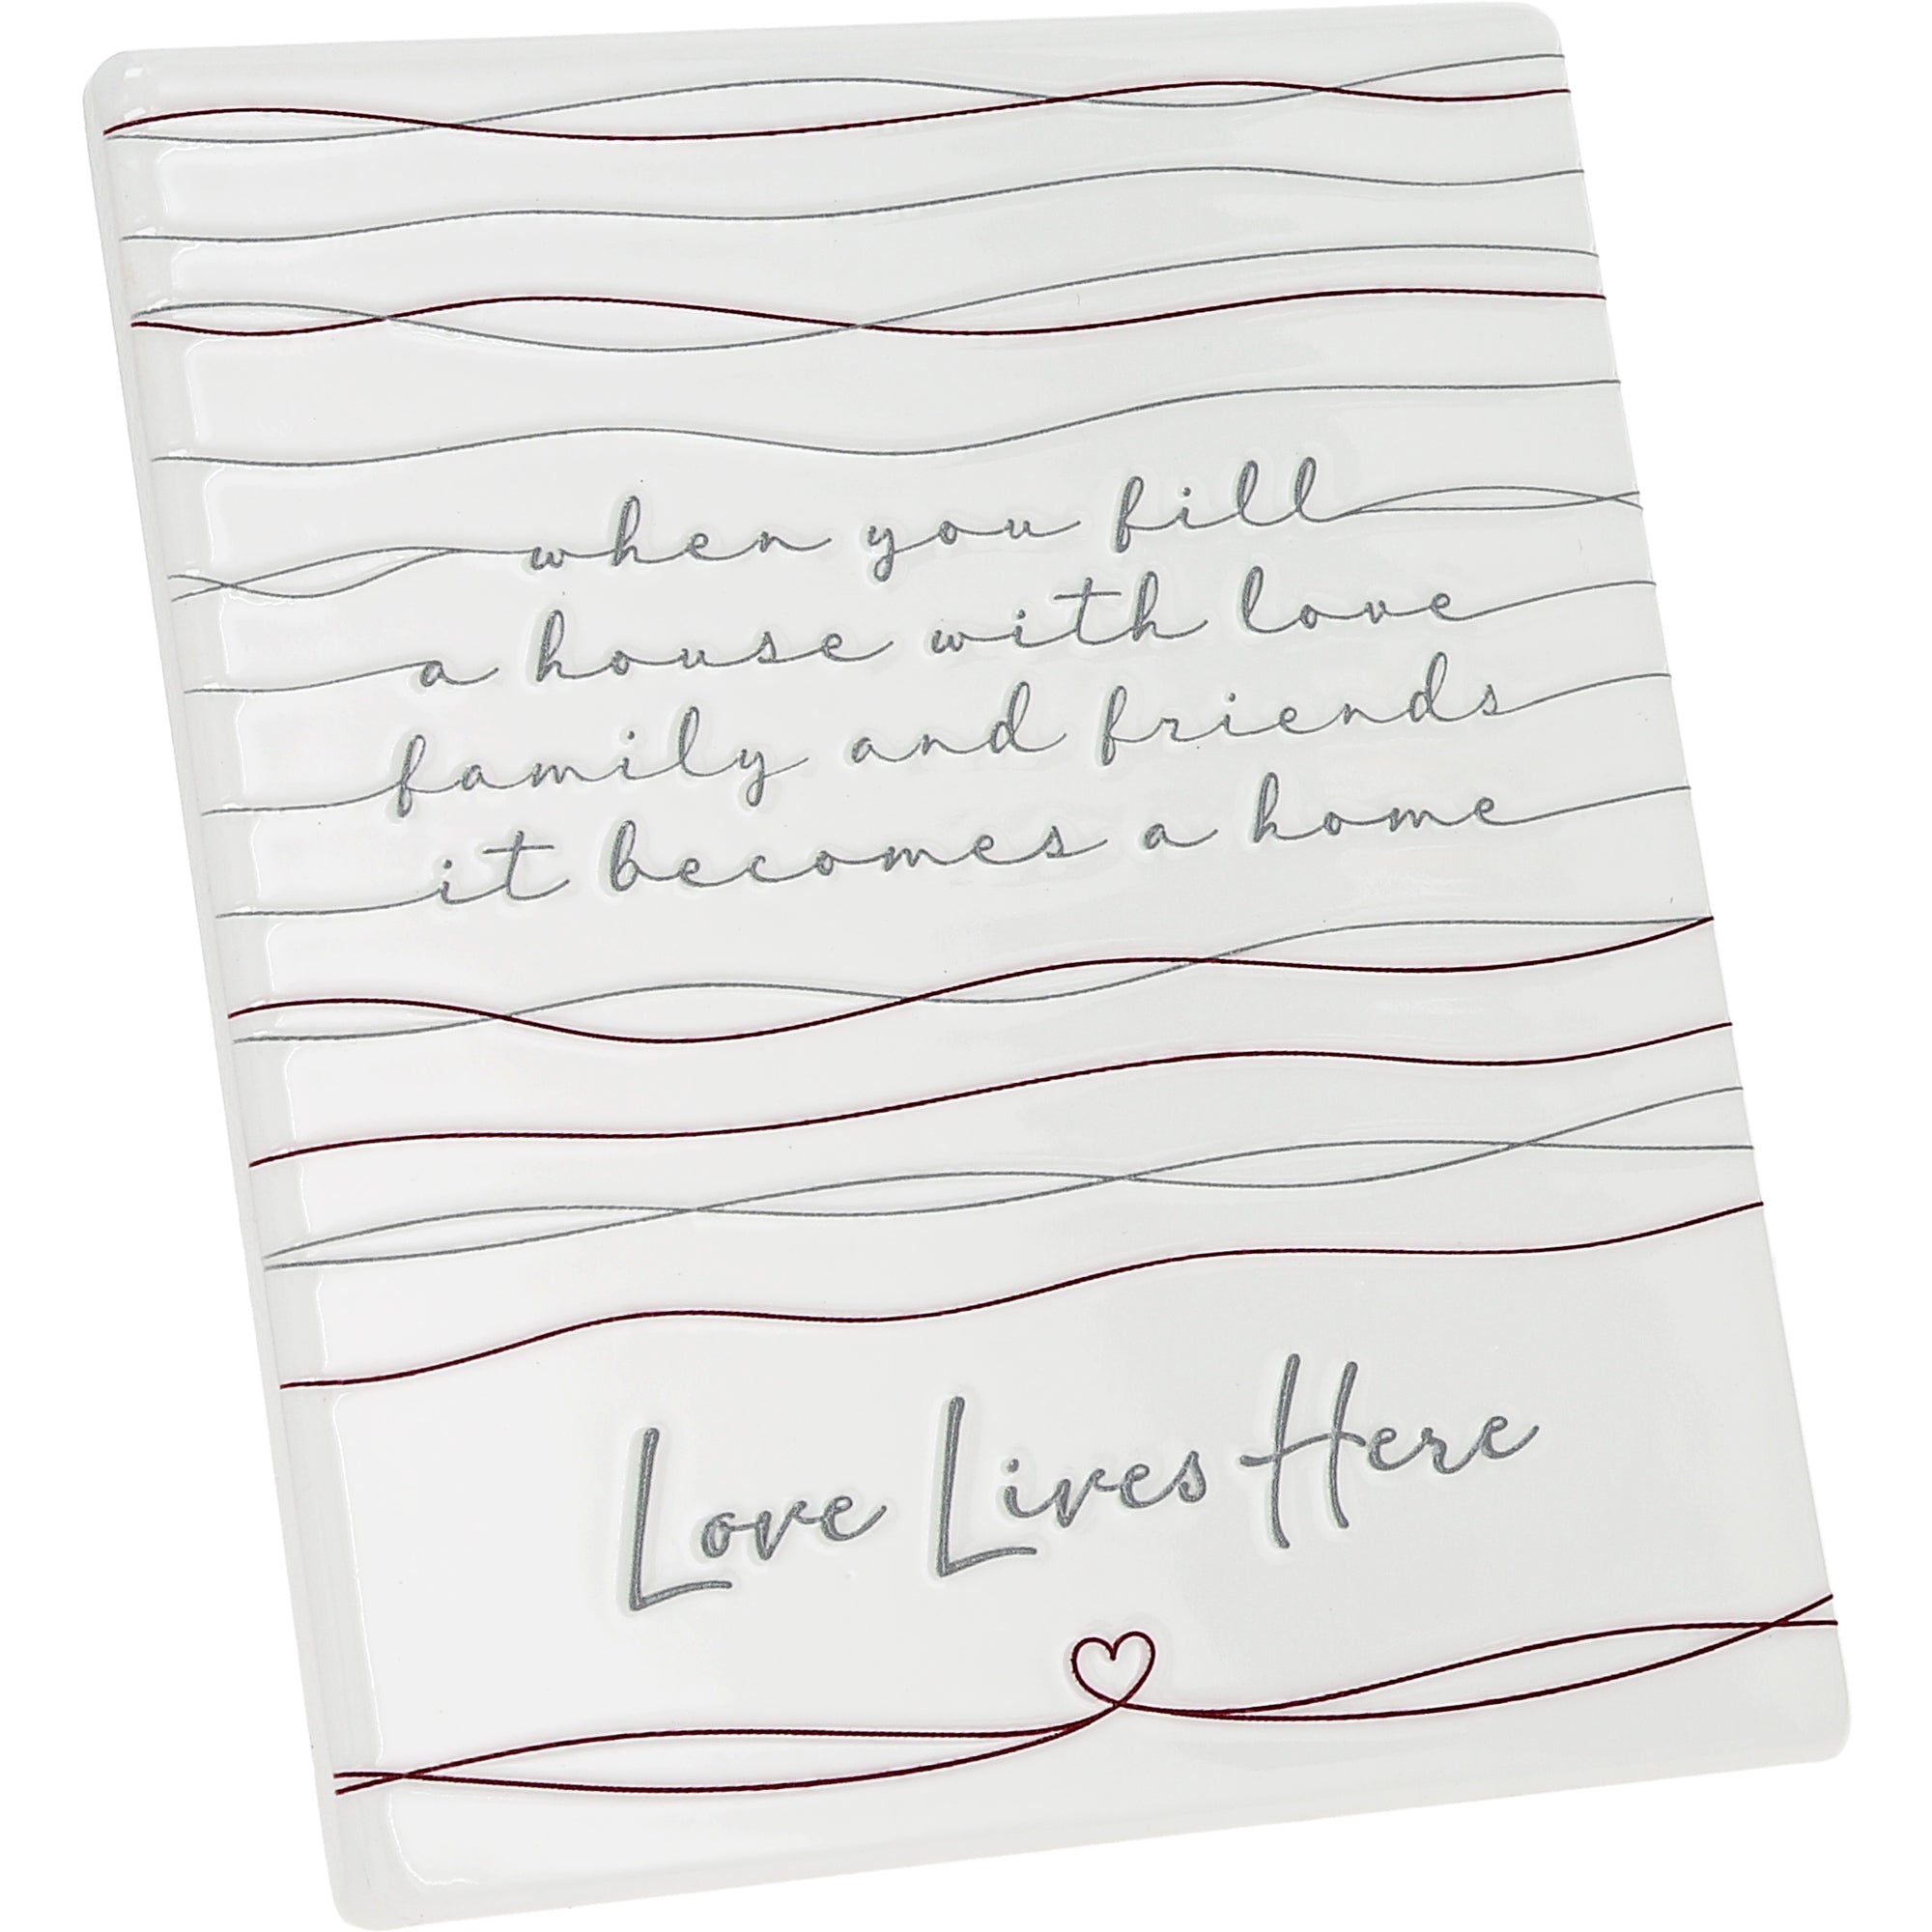 when you fill
a house with love
family and friends
it becomes a home
Love Lives Here